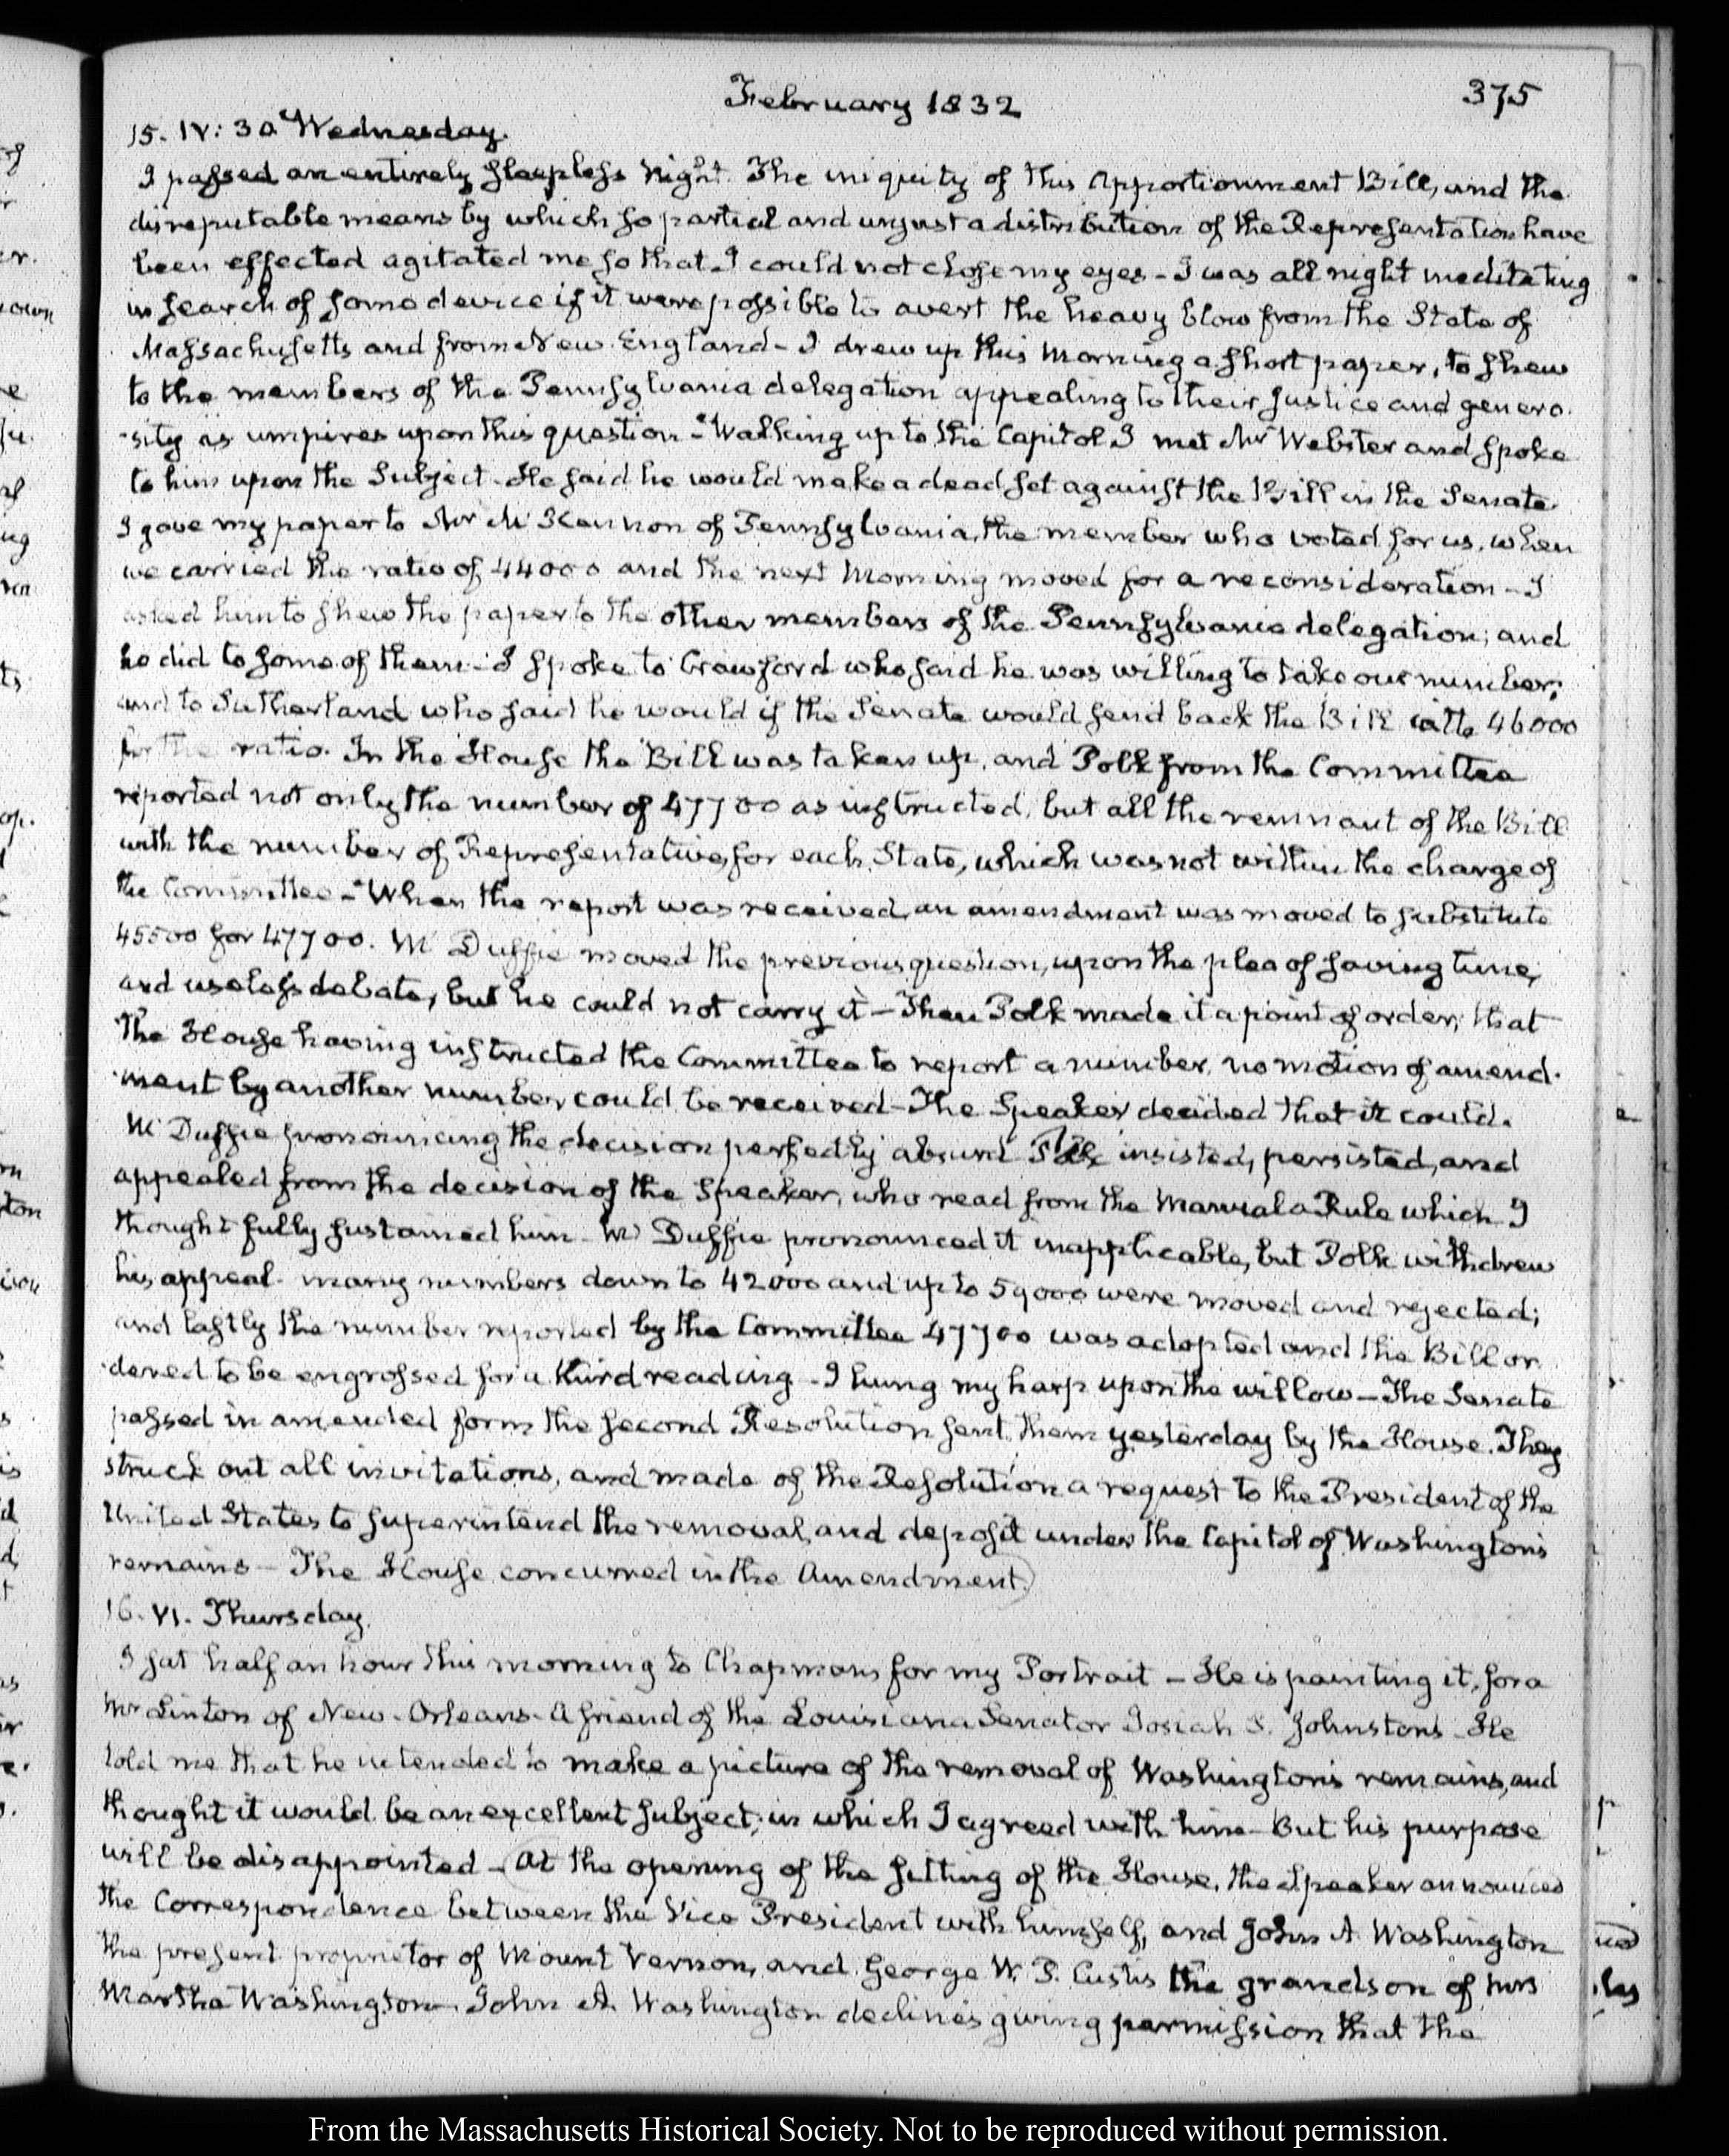 February 1832
375
15. IV:30 Wednesday.
I passed an entirely sleepless Night. The iniquity of this Apportionment Bill, and the
disreputable means by which so partial and unjust a distribution of the Representation have
been effected agitated me so that I could not close my eyes - I was all night meditating
in search of some device if it were possible to avert the heavy blow from the State of
Massachusetts and from New England - I drew up this Morning a short paper, to shew
to the members of the Pennsylvania delegation appealing to their justice and genero-
-sity as umpires upon this question - Walking up to the Capitol I met Mr Webster and spoke
to him upon the Subject. He said he would make a dead set against the Bill in the Senate.
I gave my paper to Mr McKennon of Pennsylvania, the member who voted for us, when
we carried the ratio of 44000 and the next Morning moved for a reconsideration - I
asked him to shew the paper to the other members of the Pennsylvania delegation; and
he did to some of them - I spoke to Crawford who said he was willing to take our number;
and to Sutherland who said he would if the Senate would send back the Bill with 46000
for the ratio. In the House the Bill was taken up, and Polk from the Committee
reported not only the number of 47700 as instructed, but all the remnant of the Bill
with the number of Representatives for each State, which was not within the charge of
the Committee - When the report was received, an amendment was moved to substitute
45500 for 47700. McDuffie moved the previous question, upon the plea of saving time,
and useless debate, but he could not carry it - Then Polk made it a point of order, that
the House having instructed the Committee to report a number, no motion of amend-
-ment by another number could be received - The Speaker decided that it could.
McDuffie pronouncing the decision perfectly absurd Polk insisted, persisted, and
appealed from the decision of the Speaker, who read from the Manual a Rule which I
thought fully sustained him - McDuffie pronounced it inapplicable, but Polk withdrew
his appeal. many numbers down to 42000 and up to 59000 were moved and rejected;
and lastly the number reported by the Committee 47700 was adopted and the Bill or-
-dered to be engrossed for a third reading - I hung my harp upon the willow - The Senate
passed in amended form the second Resolution sent them yesterday by the House. They
struck out all invitations, and made of the Resolution a request to the President of the
United States to superintend the removal, and deposit under the Capitol of Washington's
remains - The House concurred in the Amendment.
16. VI. Thursday.
I sat half an hour this morning to Chapman for my Portrait - He is painting it, for a
Mr Linton of New-Orleans - A friend of the Louisiana Senator Josiah S. Johnston's - He
told me that he intended to make a picture of the removal of Washington's remains, and
thought it would be an excellent subject; in which I agreed with him - But his purpose
will be disappointed - At the opening of the sitting of the House, the Speaker announced
the Correspondence between the Vice President with himself, and John A Washington
the present proprietor of Mount Vernon, and George W. P. Custis the grandson of Mrs
Martha Washington. John A. Washington declines giving permission that the
From the Massachusetts Historical Society. Not to be reproduced without permission.